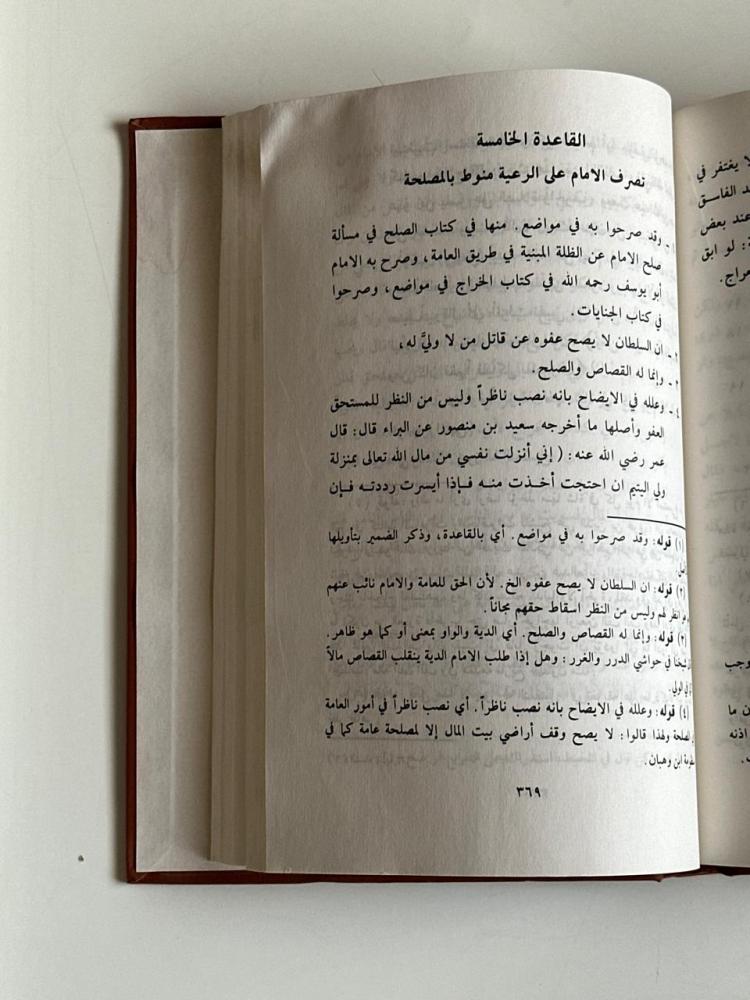 القاعدة الخامسة
تصرف الامام على الرعية منوط بالمصلحة
وقد صرحوا به في مواضع. منها في كتاب الصلح في مسألة
صلح الامام عن الظلة المبنية في طريق العامة، وصرح به الامام
أبو يوسف رحمه الله في كتاب الخراج في مواضع، وصرحوا
في كتاب الجنايات.
ان السلطان لا يصح عفوه عن قاتل من لا وليَّ له،
وإنما له القصاص والصلح.
٤ ـ وعلله في الايضاح بانه نصب ناظراً وليس من النظر للمستحق
العفو وأصلها ما أخرجه سعيد بن منصور عن البراء قال: قال
عمر رضي الله عنه: ( إني أنزلت نفسي من مال الله تعالى بمنزلة
ولي اليتيم ان احتجت أخذت منه فإذا أيسرت رددته فإن
(١) قوله: وقد صرحوا به في مواضع. أي بالقاعدة، وذكر الضمير بتأويلها
(٢) قوله: ان السلطان لا يصح عفوه الخ. لأن الحق للعامة والامام نائب عنهم
انظر لهم وليس من النظر اسقاط حقهم مجاناً.
(٣) قوله: وإنما له القصاص والصلح. أي الدية والواو بمعنى أو كما هو ظاهر.
شيخنا في حواشي الدرر والغرر: وهل إذا طلب الامام الدية ينقلب القصاص مالاً
في الولي.
(٤) قوله: وعلله في الايضاح بانه نصب ناظراً. أي نصب ناظراً في أمور العامة
لمصلحة ولهذا قالوا: لا يصح وقف أراضي بيت المال إلا لمصلحة عامة كما في
منظومة ابن وهبان.
٣٦٩
لا يغتفر في
الفاسق
عند بعض
لو ابق
ما
اذنه